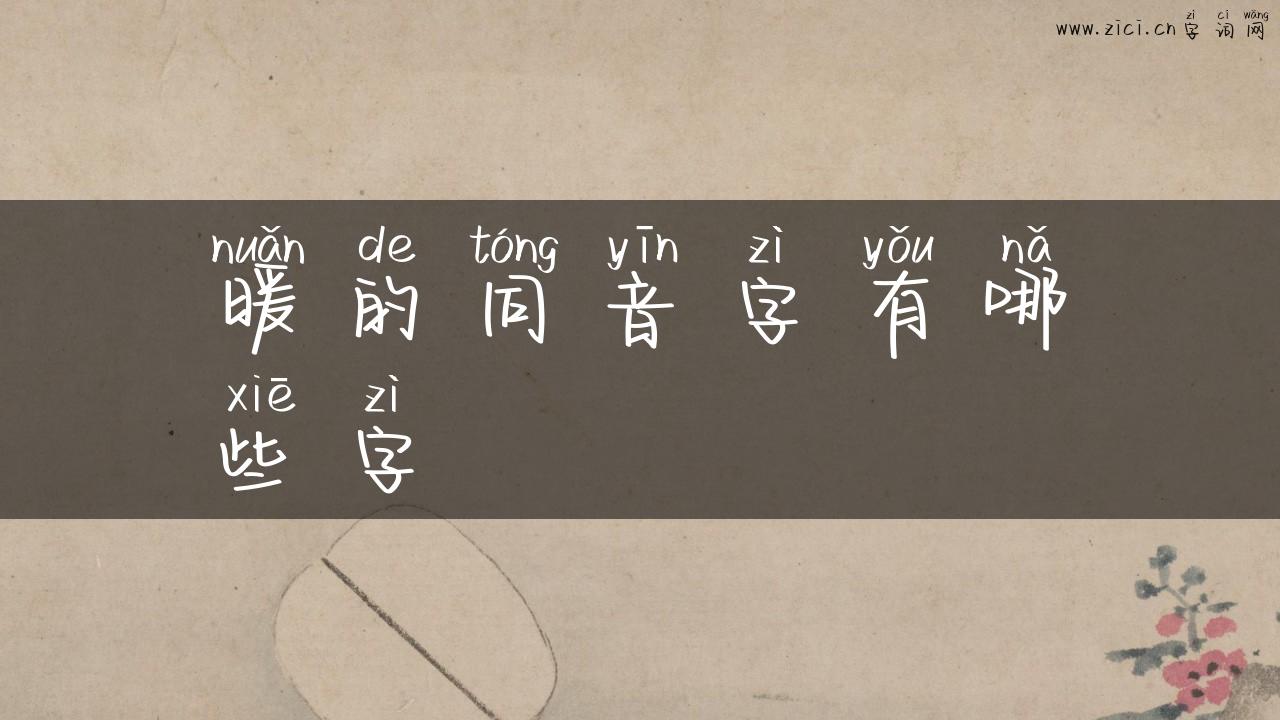 zì cí wǎng
www.zici.cn 字 词 网
nuǎn de tóng yīn zì yǒu nǎ
暖 的 同 音 字 有 哪
xiē zì
些 字